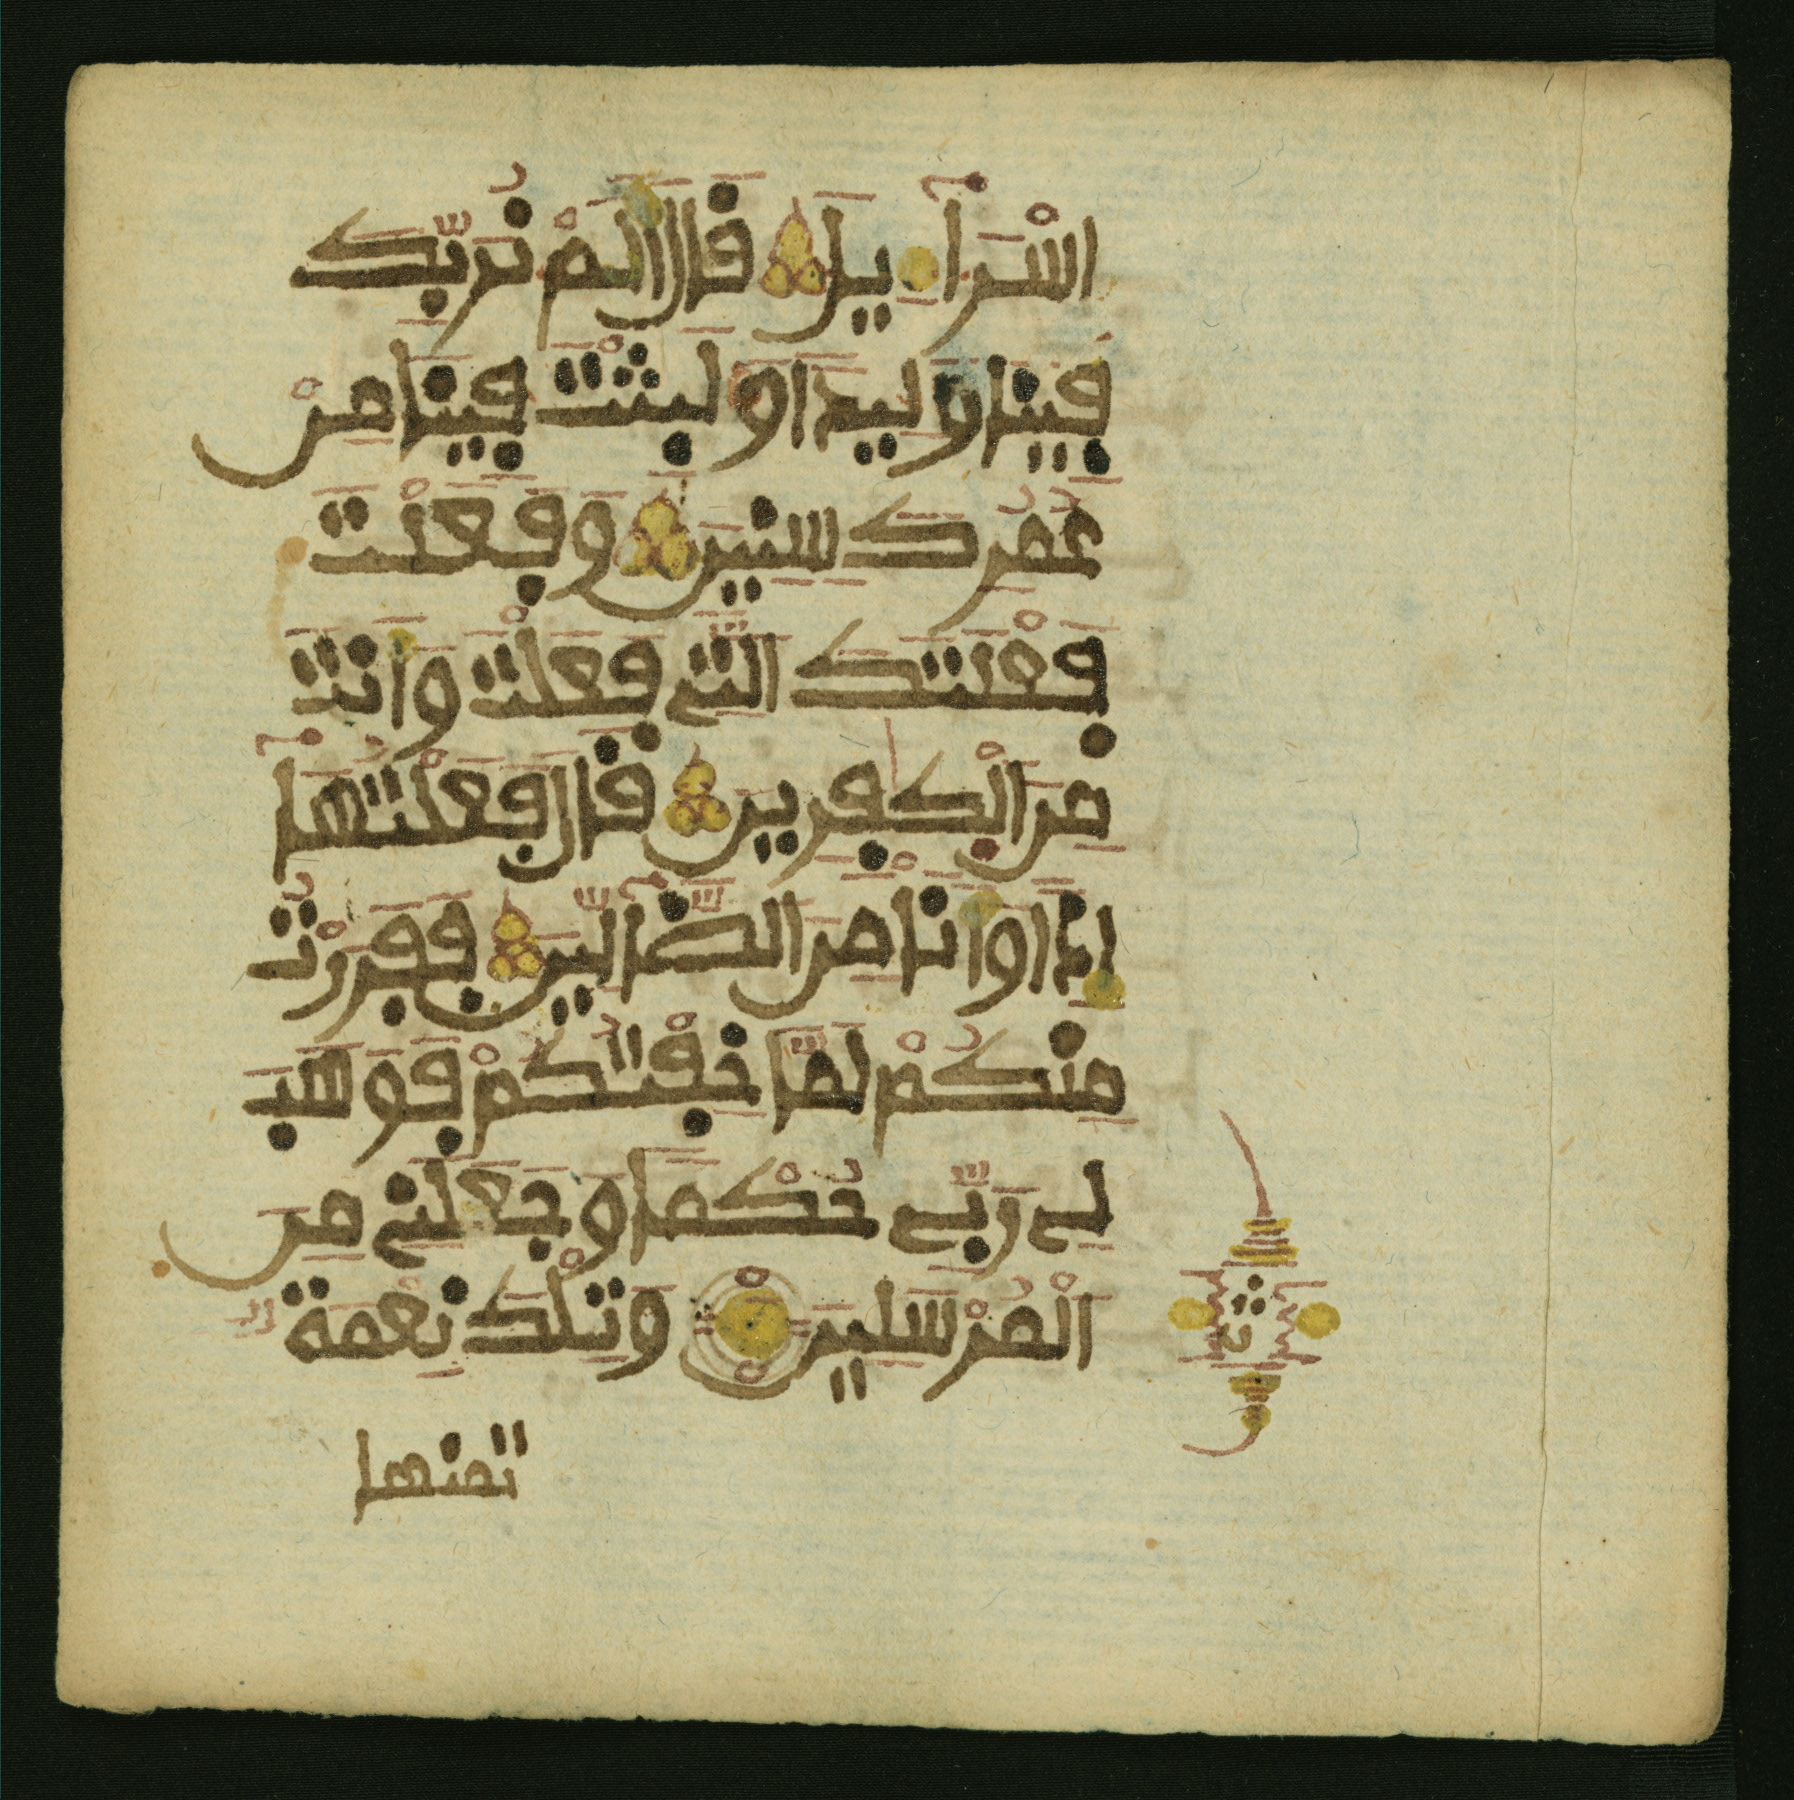 اسْرَآءِيلَ قَالَ أَلَمْ نُرَبِّكَ
فِينَا وَلِيدًا وَلَبِثْتَ فِينَا مِنْ
عُمُرِكَ سِنِينَ وَفَعَلْتَ
فَعْلَتَكَ الَّتِي فَعَلْتَ وَأَنتَ
مِنَ الْكَٰفِرِينَ قَالَ فَعَلْتُهَآ
إِذًا وَأَنَا مِنَ الضَّآلِّينَ فَفَرَرْتُ
مِنكُمْ لَمَّا خِفْتُكُمْ فَوَهَبَ
لِي رَبِّي حُكْمًا وَجَعَلَنِي مِنَ
الْمُرْسَلِينَ وَتِلْكَ نِعْمَةٌ
تمنها